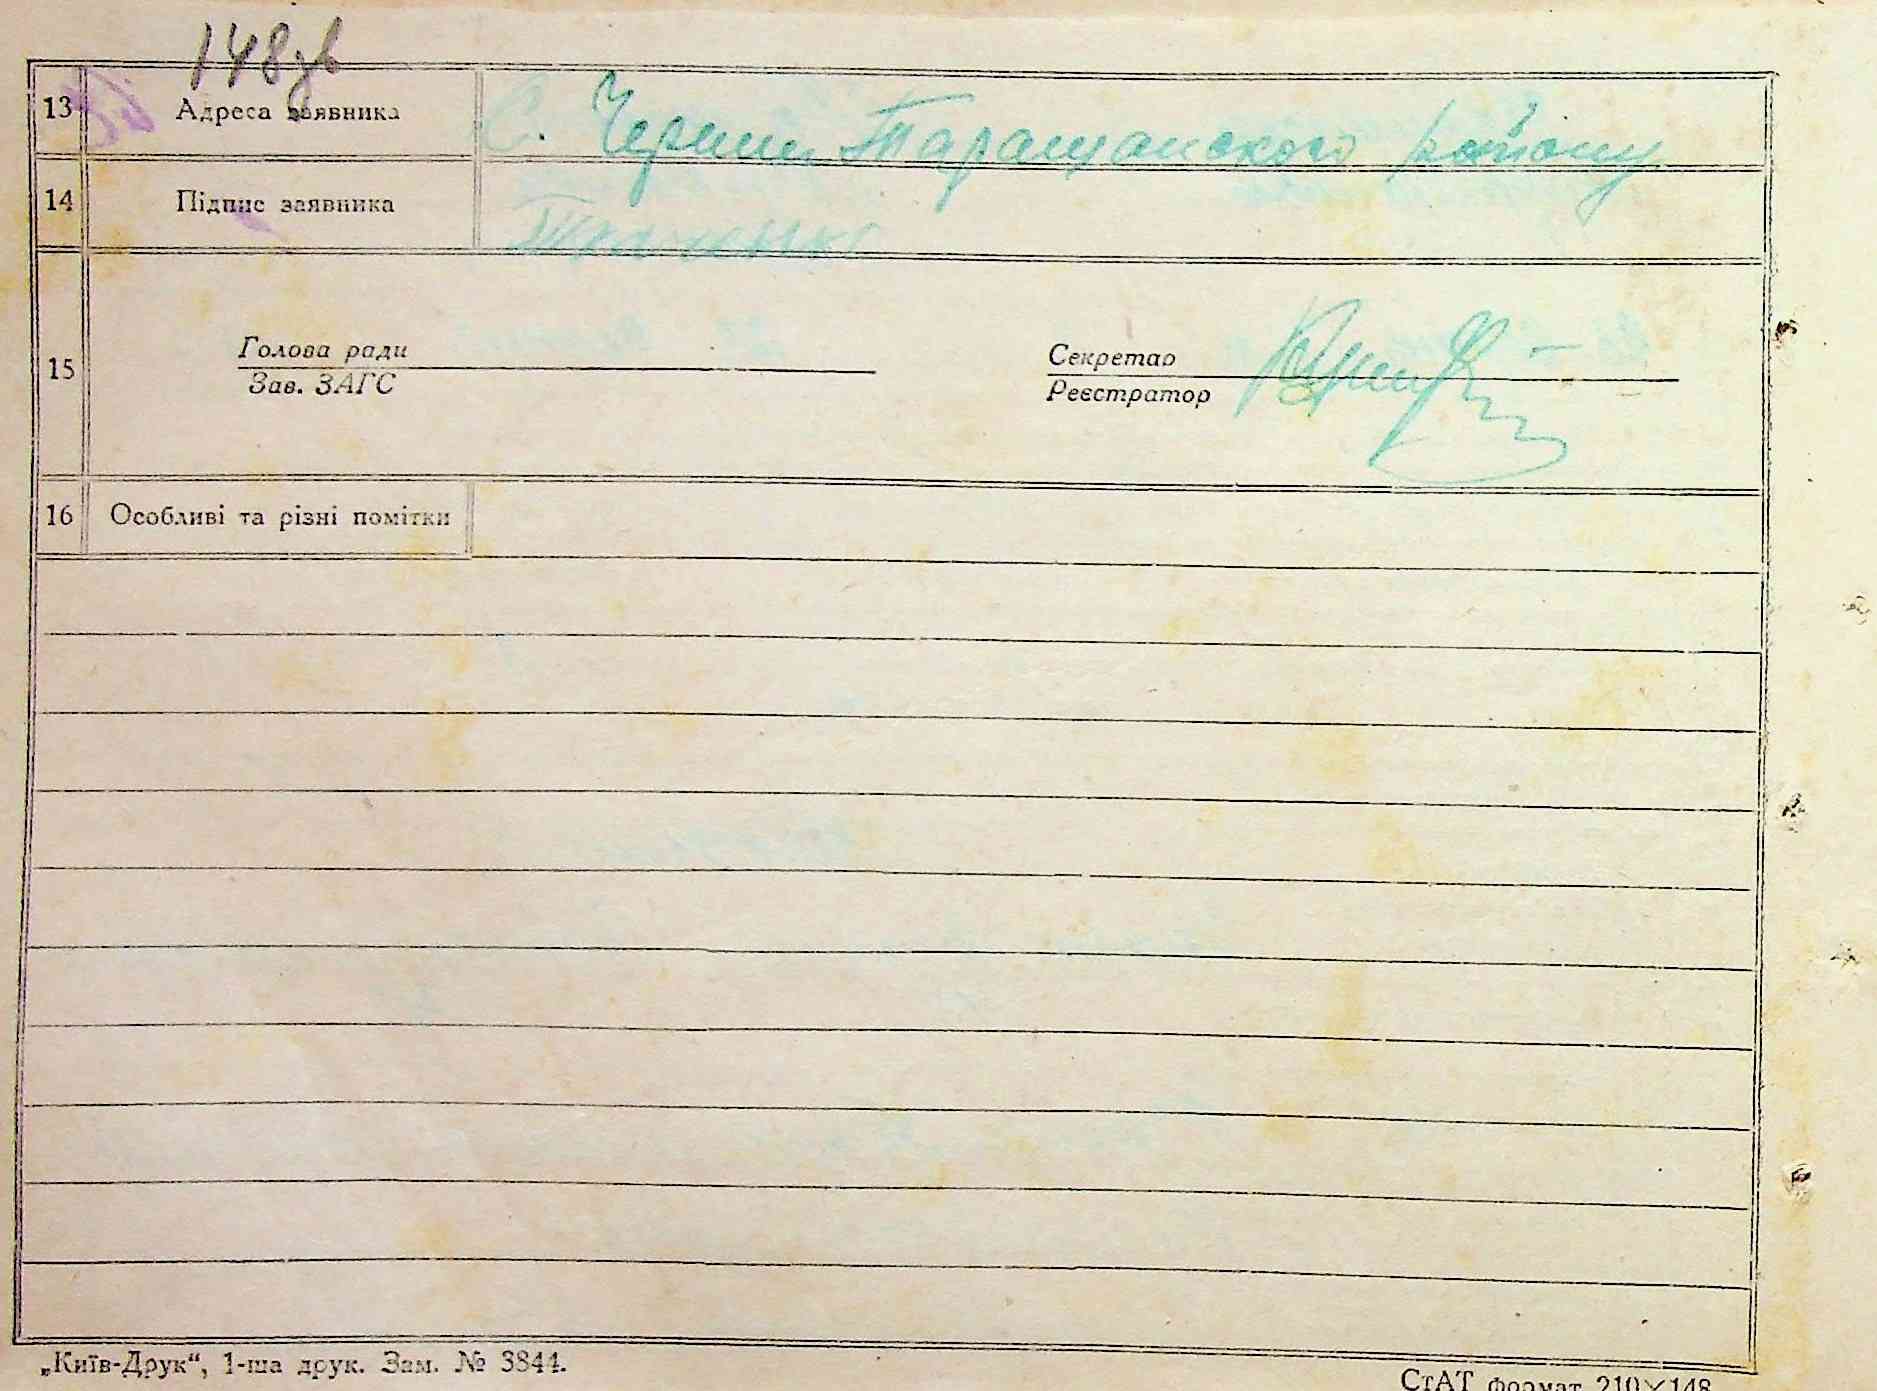 148зв
13 Адреса заявника С. Черепин Таращанского району
14 Підпис заявника Ткаченко
15 Голова ради
Зав. ЗАГС
Секретар
Реєстратор
16 Особливі та різні помітки
„Київ-Друк“, 1-ша друк. Зам. № 3844.
СтАТ формат 210×148